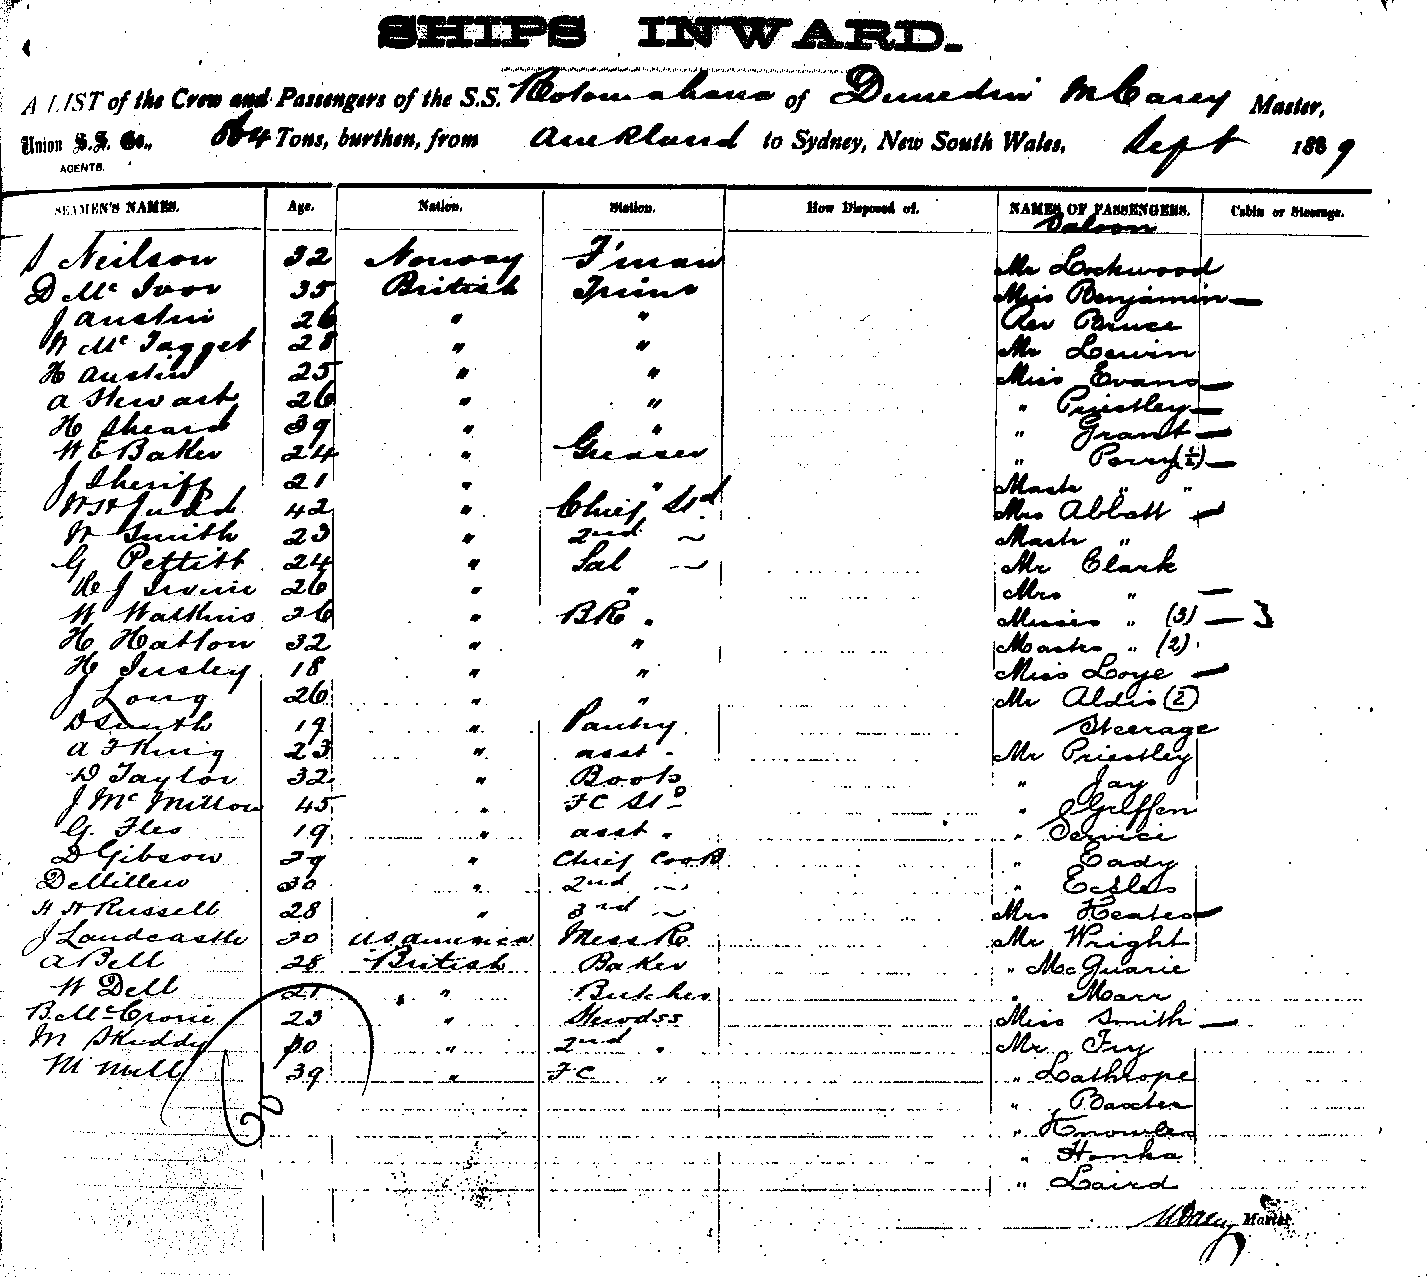 SHIPS INWARD.
A LIST of the Crew and Passengers of the S.S. Rotomahana of Dunedin M Carey Master,
Union S.S. Co., 864 Tons, burthen, from Auckland to Sydney, New South Wales, Sept 1889
AGENTS.
SEAMEN'S NAMES. Age. Nation. Station. How Disposed of. NAMES OF PASSENGERS. Cabin or Steerage.
Saloon
J Neilson 32 Norway F'man Mr Lockwood
D Mc Ivor 35 British Trims Miss Benjamin —
J Austin 26 " " Rev Bruce
W Mc Tagget 28 " " Mr Lewin
H Austin 25 " " Miss Evans —
A Stewart 26 " " " Priestley —
H Sheard 39 " " " Grant —
W E Baker 24 " Greaser " Perry (½) —
J Sheriff 21 " " Mastr " "
W H Judd 42 " Chief Std Mrs Abbott —
W Smith 23 " 2nd ~ Mastr "
G Pettitt 24 " Sal ~ Mr Clark
R J Irvine 26 " " Mrs " —
W Watkins 26 " BR " Misses " (3) — 3
H Hatton 32 " " Mastrs " (2)
H Insley 18 " " Miss Loye —
J Long 26 " " Mr Aldis (2)
D Smith 19 " Pantry Steerage
A F King 23 " asst " Mr Priestley
D Taylor 32 " Boots " Jay
J Mc Millow 45 " FC Std " Gilffen
G. Iles 19 " asst " " Service
D Gibson 29 " Chief Cook " Eady
D Millen 30 " 2nd ~ " Eccles
H H Russell 28 " 3rd ~ Mrs Keates —
J Landcastle 20 US America Mess R Mr Wright
A Bell 28 British Baker " McGuarie
W Dell 21 " Butcher " Marr
B McCrone 23 " Stewdss Miss Smith —
M Skuddy 40 " 2nd " Mr Fry
M Mull 39 " FC " " Lathrope
60 " Baxter
" Knowles
" Honka
" Laird
M Carey Master